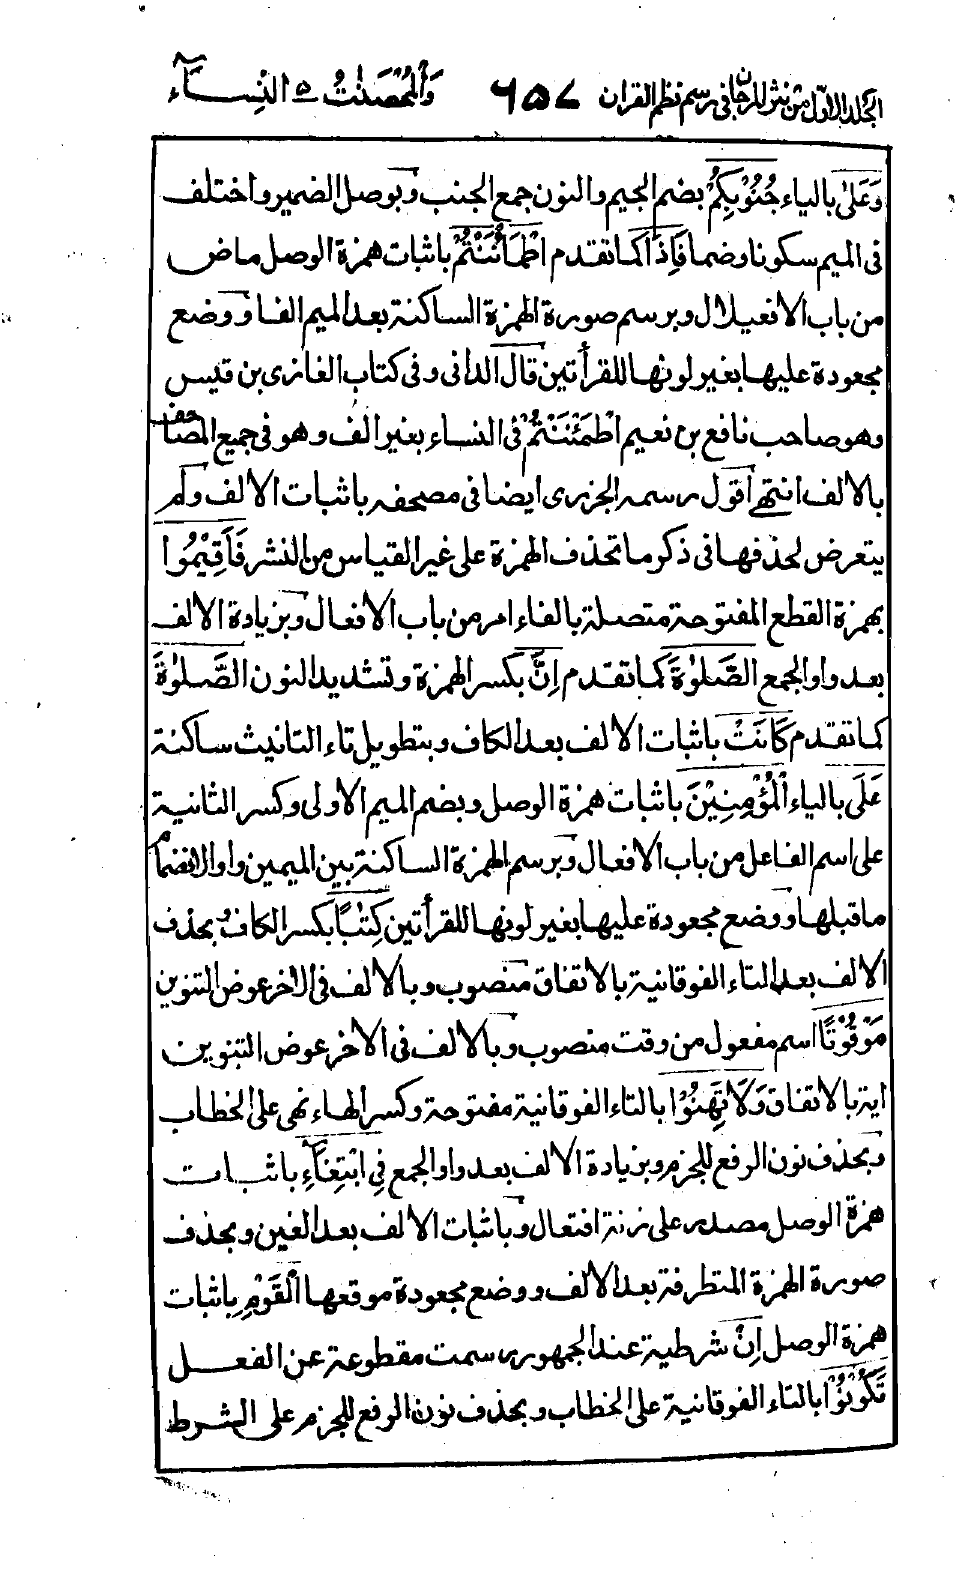 الجلد الاول من نثر المرجان فى رسم نظم القران ٦٥٧ وَالْمُحْصَنٰتُ ٥ النِّسَآء
وَعَلٰى بالياء جُنُوْبِكُمْ بضم الجيم والنون جمع الجنب وبوصل الضمير واختلف
فى الميم سكونا وضما فَاِذَا كما تقدم اطْمَأْنَنْتُمْ باثبات همزة الوصل ماض
من باب الافعيلال وبرسم صورة الهمزة الساكنة بعد الميم الفا ووضع
مجعودة عليها بغير لونها للقرأتين قال الدانى وفى كتاب الغازى بن قيس
وهو صاحب نافع بن نعيم اطْمَئْنَنْتُمْ فى النساء بغير الف وهو فى جميع المصاحف
بالالف انتهى اقول رسمه الجزرى ايضا فى مصحفه باثبات الالف ولم
يتعرض لحذفها فى ذكر ما تحذف الهمزة على غير القياس من النشر فَاَقِيْمُوا
بهمزة القطع المفتوحة متصلة بالفاء امر من باب الافعال وبزيادة الالف
بعد واو الجمع الصَّلٰوةَ كما تقدم اِنَّ بكسر الهمزة وتشديد النون الصَّلٰوةَ
كما تقدم كَانَتْ باثبات الالف بعد الكاف وبتطويل تاء التانيث ساكنة
عَلَى بالياء الْمُؤْمِنِيْنَ باثبات همزة الوصل وبضم الميم الاولى وكسر الثانية
على اسم الفاعل من باب الافعال وبرسم الهمزة الساكنة بين الميمين واوا لانضمام
ما قبلها ووضع مجعودة عليها بغير لونها للقرأتين كِتٰبًا بكسر الكاف وبحذف
الالف بعد التاء الفوقانية بالاتفاق منصوب وبالالف فى الاخر عوض التنوين
مَوْقُوْتًا اسم مفعول من وقت منصوب وبالالف فى الاخر عوض التنوين
اية بالاتفاق وَلَا تَهِنُوْا بالتاء الفوقانية مفتوحة وكسر الهاء نهى على الخطاب
وبحذف نون الرفع للجزم وبزيادة الالف بعد واو الجمع فِى ابْتِغَآءِ باثبات
همزة الوصل مصدر على زنة افتعال وباثبات الالف بعد الغين وبحذف
صورة الهمزة المتطرفة بعد الالف ووضع مجعودة موقعها الْقَوْمِ باثبات
همزة الوصل اِنْ شرطية عند الجمهور رسمت مقطوعة عن الفعل
تَكُوْنُوْا بالتاء الفوقانية على الخطاب وبحذف نون الرفع للجزم على الشرط